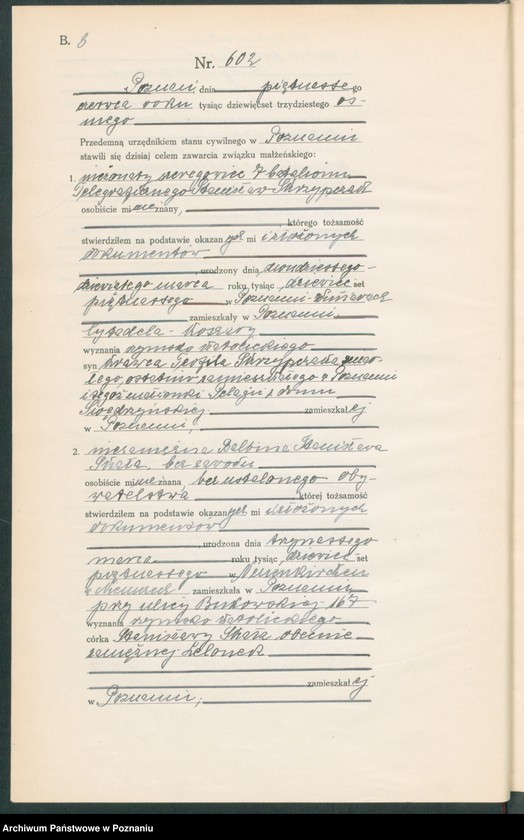 B. 8
Nr. 602
Poznań, dnia piętnastego
czerwca roku tysiąc dziewięćset trzydziestego ós-
mego
Przedemną urzędnikiem stanu cywilnego w Poznaniu
stawili się dzisiaj celem zawarcia związku małżeńskiego:
1. nieżonaty szeregowiec 7 bataljonu
Telegraficznego Stanisław Skrzypczak
osobiście mi nieznany,
którego tożsamość
stwierdziłem na podstawie okazanych mi i złożonych
dokumentów
, urodzony dnia dwudziestego
dziewiątego marca roku tysiąc dziewięćset
piętnastego w Poznaniu-Winiarach
zamieszkały w Poznaniu
Cytadela - Koszary
wyznania rzymsko katolickiego
syn krawca Teofila Skrzypczaka zmar-
łego, ostatnio zamieszkałego w Poznaniu
i tegoż małżonki Pelagji z domu
zamieszkałej
w Poznaniu;
2. niezamężna Balbina Stanisława
Skała, bez zawodu
osobiście mi nieznana, bez ustalonego oby-
watelstwa której tożsamość
stwierdziłem na podstawie okazanych mi złożonych
dokumentów
, urodzona dnia trzynastego
marca roku tysiąc dziewięćset
piętnastego w Neuenkirchen
w Niemczech zamieszkała w Poznaniu
przy ulicy Bukowskiej 167
wyznania rzymsko katolickiego
córka Stanisławy Skała obecnie
zamężnej
zamieszkałej
w Poznaniu;
Archiwum Państwowe w Poznaniu